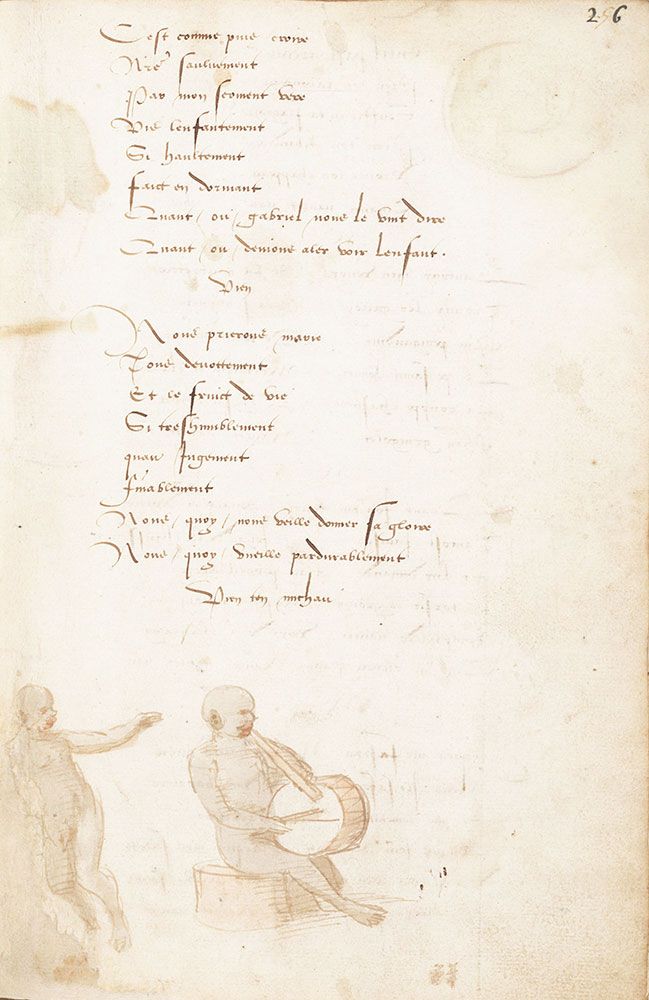 256
Cest comme puis croire
Nre saulvement
Par mon serment vere
Vie lenfantement
Si haultement
faict en dormant
Quant / ou / gabriel nous le vint dire
Quant / ou / devions aler voir lenfant .
Vien
Nous prierons marie
Tous devottement
Et le fruict de vie
Si treshumblement
quau Jugement
finablement
Nous / quoy / nous veille donner sa glore
Nous / quoy / vueille pardurablement
Vien ten michau